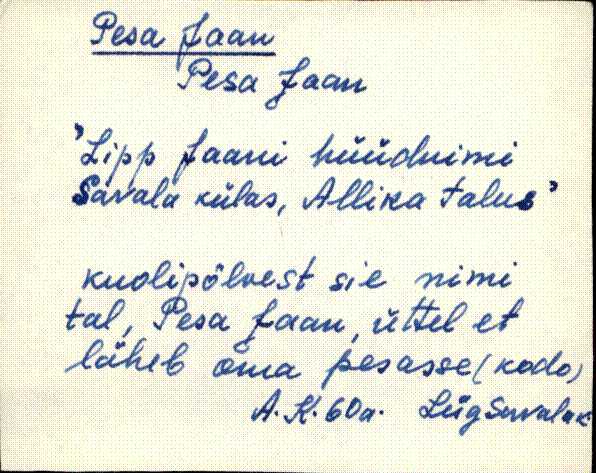 Pesa Jaan
Pesa Jaan
"Lipp Jaani hüüdnimi
Savala külas, Allika talus"
kuolipõlvest sie nimi
tal, Pesa Jaan, üttel et
läheb oma pesasse (kodo)
A. K. 60a. Lüg Savala k.